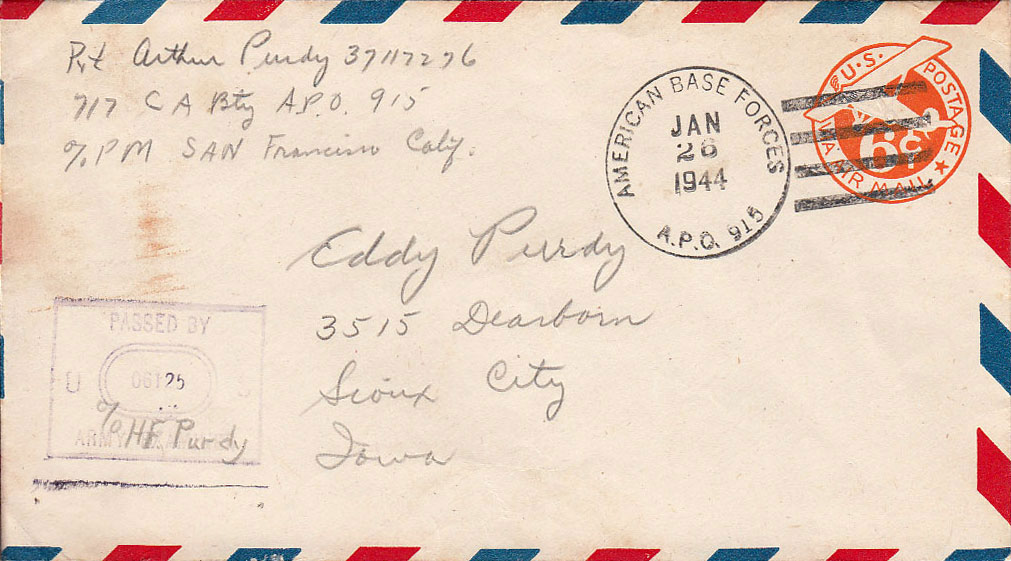 Pvt Arthur Purdy 37117276
717 C A Bty A.P.O. 915
% PM SAN Francisco Calif.
AMERICAN BASE FORCES
JAN
26
1944
A.P.O. 915
U.S. POSTAGE
6¢
VIA AIR MAIL
Eddy Purdy
3515 Dearborn
Sioux City
Iowa
PASSED BY
U S
06125
ARMY
% HF Purdy